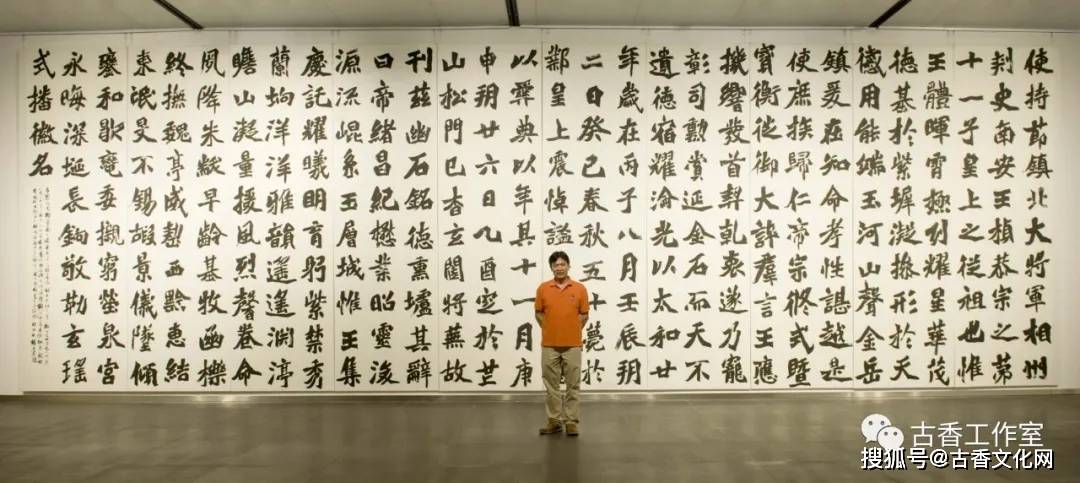 使持節鎮北大將軍相州
刺史南安王楨恭宗之第
十一子皇上之從祖也惟
王體暉霄極列耀星華茂
德基於紫墀凝操形於天
感用能端玉河山聲金岳
鎮爰在知命孝性諶越是
使庶族歸仁帝宗攸式暨
寶衡從御大訊羣言王應
機響發首契乾衷遂乃寵
彰司勳賞延金石而天不
遺德宿耀淪光以太和廿
年歲在丙子八月壬辰朔
二日癸巳春秋五十薨於
鄴皇上震悼諡
以彝典以年其十一月庚
申朔廿六日乙酉窆於芒
山松門已杳玄闥將蕪故
刊茲幽石銘德熏壚其辭
曰帝緒昌紀懋業昭靈浚
源流崐系玉層城惟王集
慶託耀曦明育躬紫禁秀
蘭坰洋洋雅韻遙遙淵渟
瞻山凝量援風烈馨卷命
夙降朱黻早齡基牧函櫟
終撫魏亭威整西黔惠結
東氓旻不錫嘏景儀墜傾
鑾和歇轙委櫬窮塋泉宮
永晦深埏長鉤敬勒玄瑤
式播徽名
古香工作室
搜狐号@古香文化网